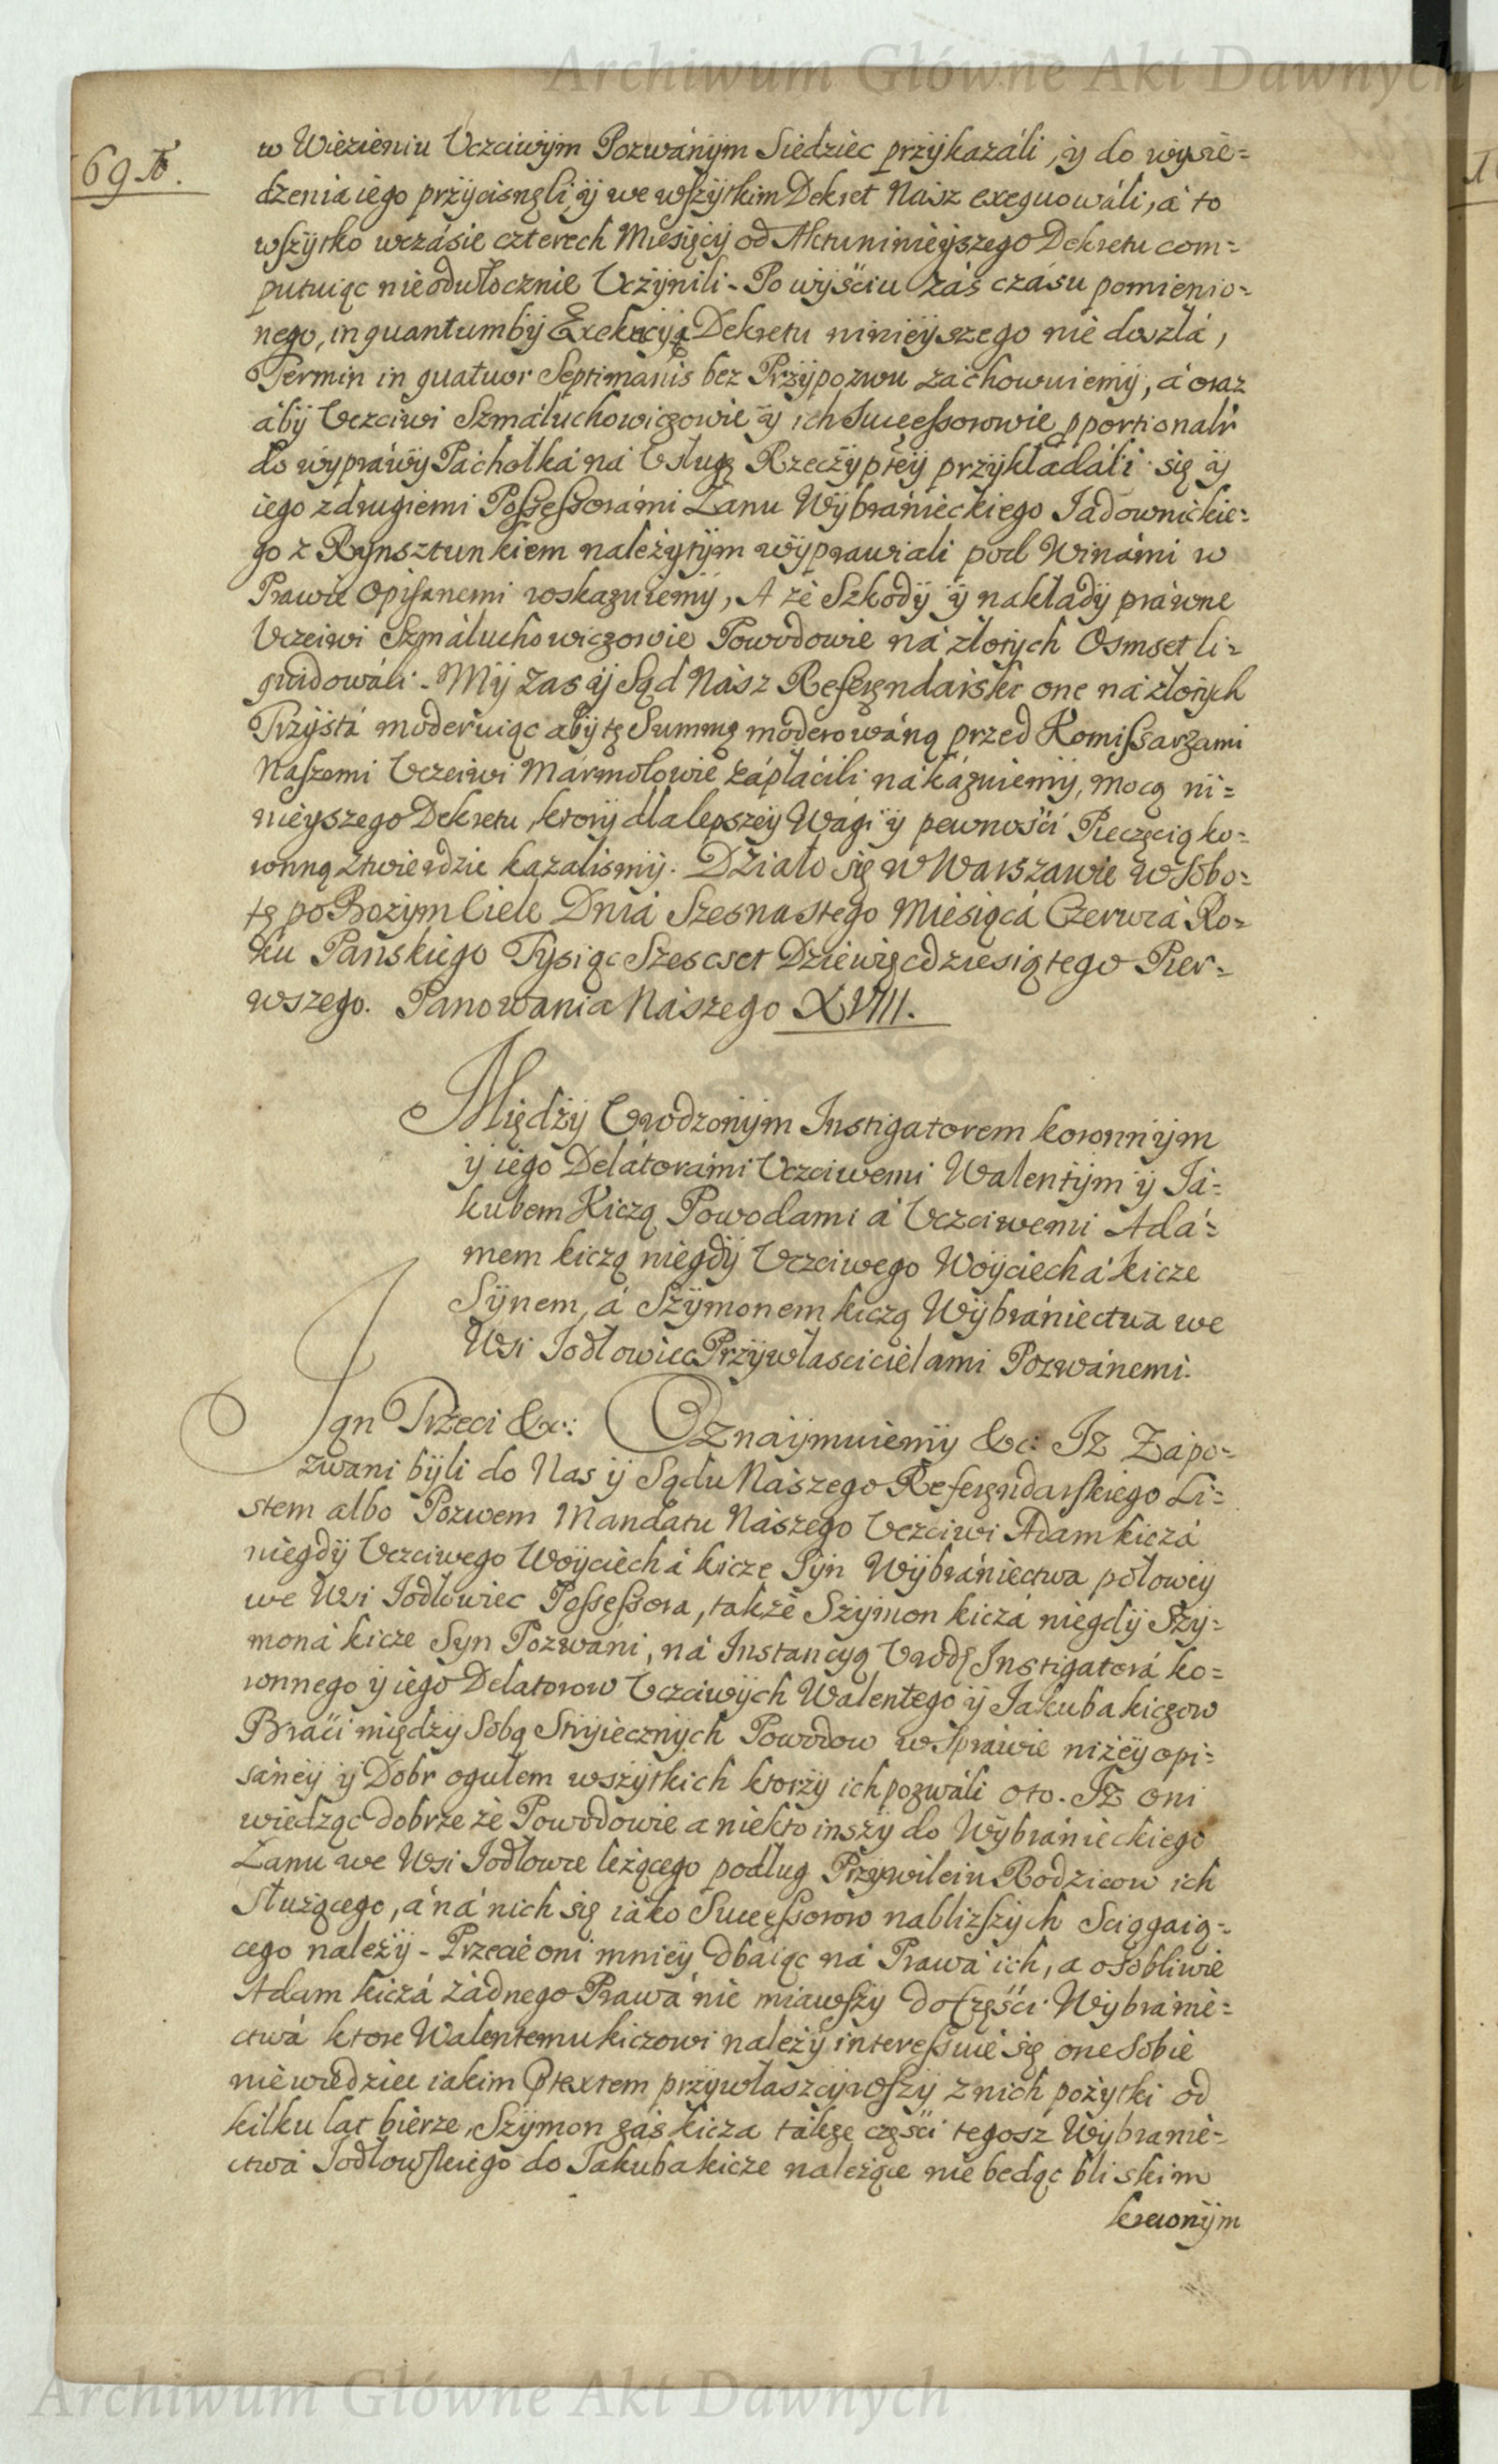 Archiwum Główne Akt Dawnych
69
w Więzieniu Uczciwym Pozwánym Siedziec przykazáli, ÿ do wysie=
dzenia iego przÿcisnęli, ÿ we wszÿtkim Dekret Nász exequowáli, á to
wszÿtko wczásie czterech Miesięcÿ od Aktu ninieÿszego Dekretu com=
putuiąc nieodwłocznie Uczÿnili. Po wÿsciu záś czásu pomienio=
nego, inquantumbÿ Exekucÿa Dekretu ninieÿszego nie doszłá,
Termin in quatuor Septimanis bez Przÿpozwu záchowuiemÿ, á oraz
ábÿ Uczciwi Szmáluchowiczowie ÿ ich Successorowie pportionalr
do wÿpráwÿ Pachołká ná Usługę Rzeczÿpteÿ przÿkładáli się ÿ
iego z drugiemi Possessorámi Łanu Wÿbránieckiego Jadownickie=
go z Rynsztunkiem należÿtÿm wÿprawiali pod Winámi w
Prawie Opisanemi roskazuiemÿ, A że Szkodÿ ÿ nakładÿ práwne
Uczciwi Szmáluchowiczowie Powodowie ná złotÿch Osmset li=
quidowáli. Mÿ zas ÿ Sąd Nász Referęndarski one ná złotÿch
Trzÿstá moderuiąc abÿ tę Summę moderowáną przed Komissarzami
Naszemi Uczciwi Mármołowie zápłácili nákázuiemÿ, mocą ni=
nieÿszego Dekretu, ktorÿ dla lepszeÿ Wági ÿ pewności Pieczęcią ko=
ronną ztwierdzic kazalismÿ. Działo się w Warszawie w Sobo=
tę po Bozym Ciele Dniá Szesnastego Miesiącá Czerwcá Ro=
ku Panskiego Tysiąc Szescset Dziewięcdziesiątego Pier=
wszego. Panowania Nászego XVIII.
Międzÿ Urodzonÿm Instigatorem koronnÿm
ÿ iego Delátorámi Uczciwemi Walentÿm ÿ Já=
kubem Kiczą Powodami á Uczciwemi Adá=
mem kiczą niegdÿ Uczciwego Woÿciechá kicze
Sÿnem, á Szÿmonem kiczą Wÿbránictwa we
Wsi Jodłowiec Przÿwłascicielami Pozwánemi.
Jan Trzeci &c: Oznaÿmuiemÿ &c: Iz Zápo=
zwani bÿli do Nas ÿ Sądu Nászego Referęndarskiego Li=
stem albo Pozwem Mandatu Nászego Uczciwi Adam kiczá
niegdÿ Uczciwego Woÿciechá kicze Sÿn Wÿbrániectwa połoweÿ
we Wsi Jodłowiec Possessora, także Szÿmon kiczá niegdÿ Szÿ=
moná kicze Syn Pozwáni, ná Instancyą Urodz Instigatorá ko=
ronnego ÿ iego Delatorow Uczciwÿch Walentego ÿ Jakuba kiczow
Bráci międzÿ Sobą Strÿiecznÿch Powodow w Spráwie niżeÿ opi=
sáneÿ ÿ Dobr ogułem wszÿtkich ktorzÿ ich pozwáli oto. Iz oni
wiedząc dobrze że Powodowie a niekto inszÿ do Wÿbránieckiego
Łanu we Wsi Jodłowce leżącego podług Przÿwileiu Rodzicow ich
służącego, á ná nich się iáko Successorow nabliższÿch sciągaią=
cego należÿ. Przecie oni mnieÿ dbaiąc ná Prawá ich, a osobliwie
Adam kiczá żádnego Prawá nie miawszÿ do Części Wÿbránie=
ctwá ktore Walentemu kiczowi należÿ interessuie się one sobie
niewiedziec iakim Ptextem przÿwłaszczÿwszÿ z nich pożÿtki od
kilku lat bierze, Szÿmon záś kicza także części tegosz Wÿbranie=
ctwá Jodłowskiego do Jakuba kicze należące nie będąc bliskim
krewnÿm
Archiwum Główne Akt Dawnych